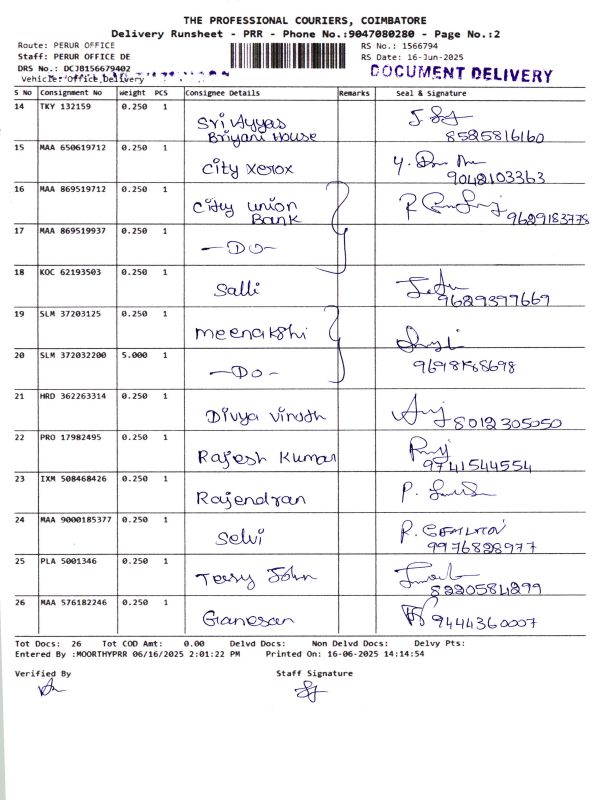 THE PROFESSIONAL COURIERS, COIMBATORE
Delivery Runsheet - PRR - Phone No.:9047080280 - Page No.:2
Route: PERUR OFFICE RS No.: 1566794
Staff: PERUR OFFICE DE RS Date: 16-Jun-2025
DRS No.: DCJ8156679402 DOCUMENT DELIVERY
Vehicle:Office Delivery
S No Consignment No Weight PCS Consignee Details Remarks Seal & Signature
14 TKY 132159 0.250 1 Sri Ayyas
Briyani House 8525816160
15 MAA 650619712 0.250 1 City xerox
9042103363
16 MAA 869519712 0.250 1 City union
Bank 9629183778
17 MAA 869519937 0.250 1 —DO—
18 KOC 62193503 0.250 1 Salli
9629397669
19 SLM 37203125 0.250 1 Meenakshi
20 SLM 372032200 5.000 1 —DO—
21 HRD 362263314 0.250 1 Divya Viruth 8012305050
22 PRO 17982495 0.250 1 Rajesh Kumar
9741544554
23 IXM 508468426 0.250 1 Rajendran
24 MAA 9000185377 0.250 1 Selvi
9976828977
25 PLA 5001346 0.250 1 Teery John
8220584299
26 MAA 576182246 0.250 1 Ganesan 9444360007
Tot Docs: 26 Tot COD Amt: 0.00 Delvd Docs: Non Delvd Docs: Delvy Pts:
Entered By :MOORTHYPRR 06/16/2025 2:01:22 PM Printed On: 16-06-2025 14:14:54
Verified By Staff Signature